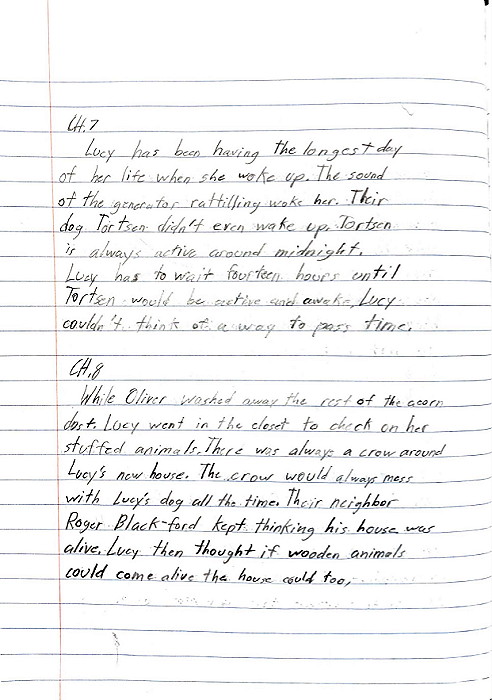 CH.7
Lucy has been having the longest day
of her life when she woke up. The sound
of the generator rattilling woke her. Their
dog Tortsen didn't even wake up. Tortsen
is always active around midnight.
Lucy has to wait fourteen hours until
Tortsen would be active and awake, Lucy
couldn't think of a way to pass time.
CH.8
While Oliver washed away the rest of the acorn
dost. Lucy went in the closet to check on her
stuffed animals. There was always a crow around
Lucy's new house. The crow would always mess
with Lucy's dog all the time. Their neighbor
Roger Black-ford kept thinking his house was
alive. Lucy then thought if wooden animals
could come alive the house could too,